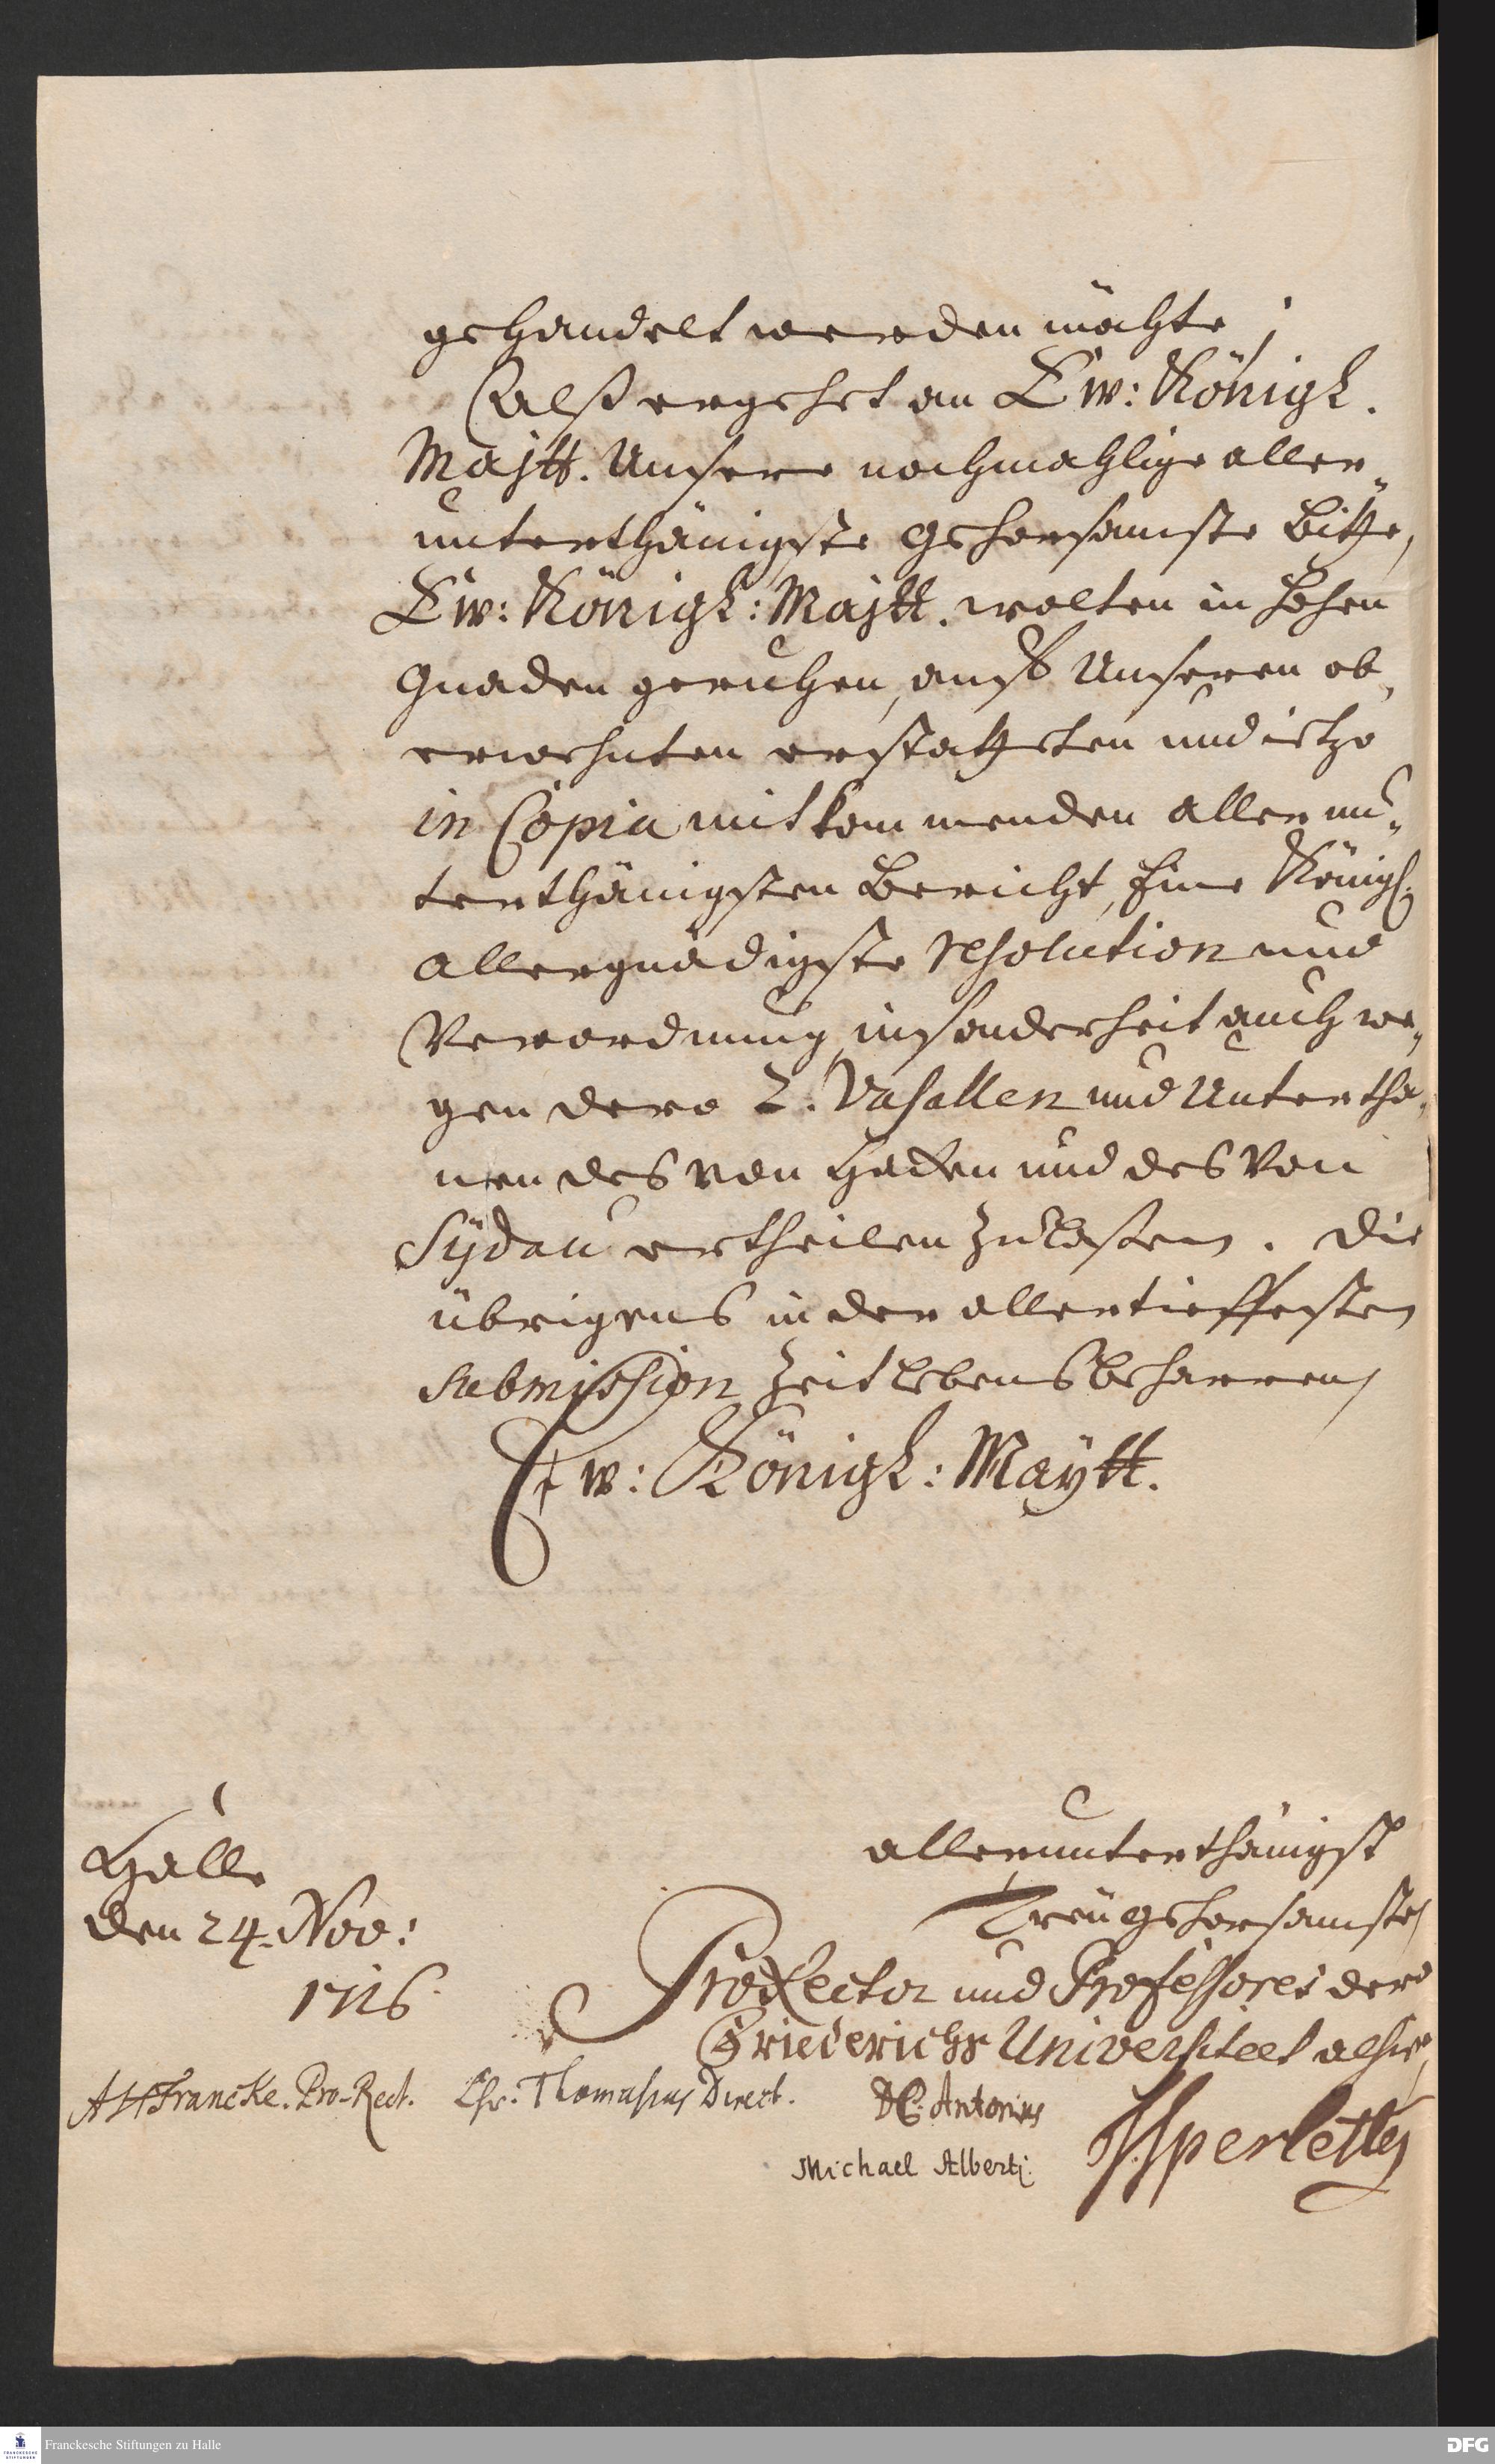 gehandelt werden möchte;
Alß ergehet an Ew: Königl.
Majtt. Unsere nochmahlige aller„
unterthänigste gehorsamste Bitte,
Ew: Königl: Majtt. wolten in hohen
Gnaden geruhen, auf Unseren ob„
erwehnten erstatteten und ietzo
in Copia mitkommenden allerun„
terthänigsten Bericht, Eine Königl.
allergnädigste resolution und
Verordnung, insonderheit auch we„
gen dero 2. Vasallen und Untertha„
nen des von Hacken und des von
Sydau ertheilen zu laßen. Die
übrigens in der allertieffesten
submission Zeit lebens beharren
Ew: Königl: Maytt.
allerunterthänigst
Treügehorsamste
ProRector und Professores dero
Friederichs Universiteet alhier,
Halle
den 24. Nov:
1716.
AHFrancke. Pro-Rect. Chr. Thomasius Direct.
Antonius
Michael Alberti.
Sperlette
Franckesche Stiftungen zu Halle
DFG